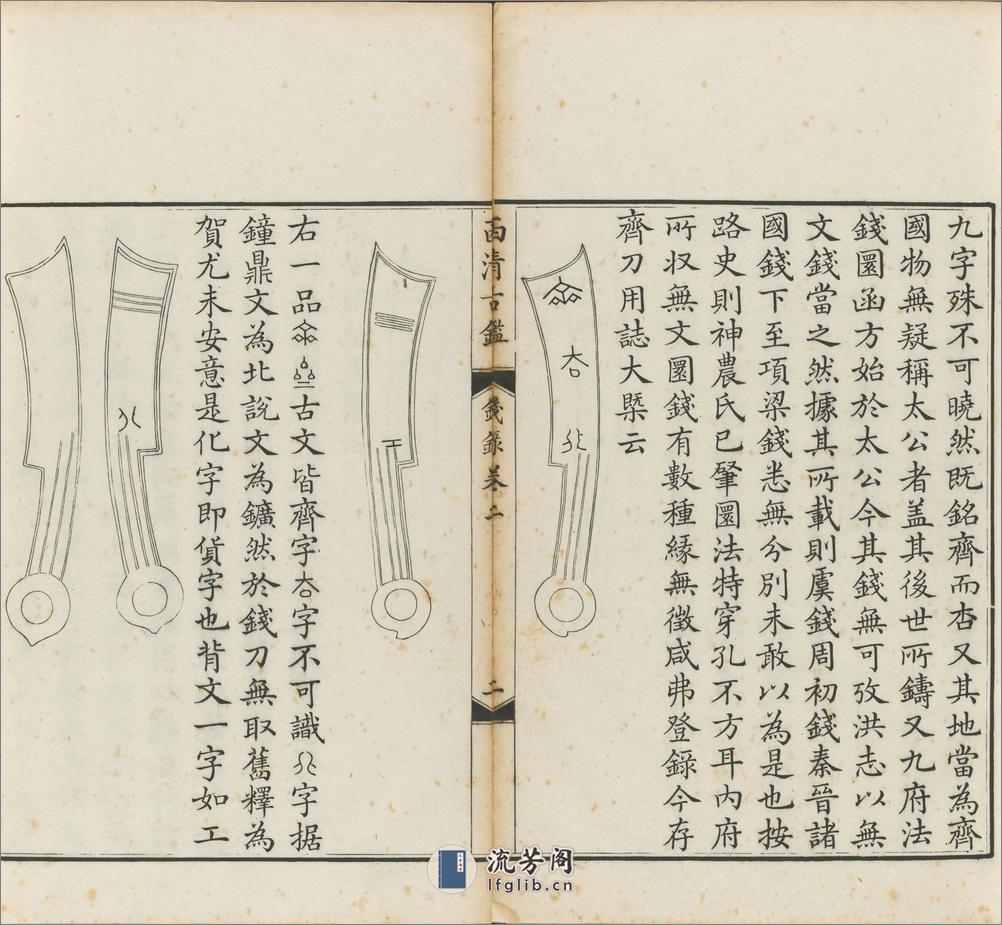 九字殊不可曉然既銘齊而杏又其地當為齊
國物無疑稱太公者蓋其後世所鑄又九府法
錢圜函方始於太公今其錢無可攷洪志以無
文錢當之然據其所載則虞錢周初錢秦晉諸
國錢下至項梁錢悉無分別未敢以為是也按
路史則神農氏已肇圜法特穿孔不方耳內府
所収無文圜錢有數種緣無徵咸弗登錄今存
齊刀用誌大槩云
西清古鑑
錢錄卷二
二
右一品古文皆齊字杏字不可識字据
鐘鼎文為北說文為鑛然於錢刀無取舊釋為
賀尤未安意是化字即貨字也背文一字如工
流芳阁
lfglib.cn